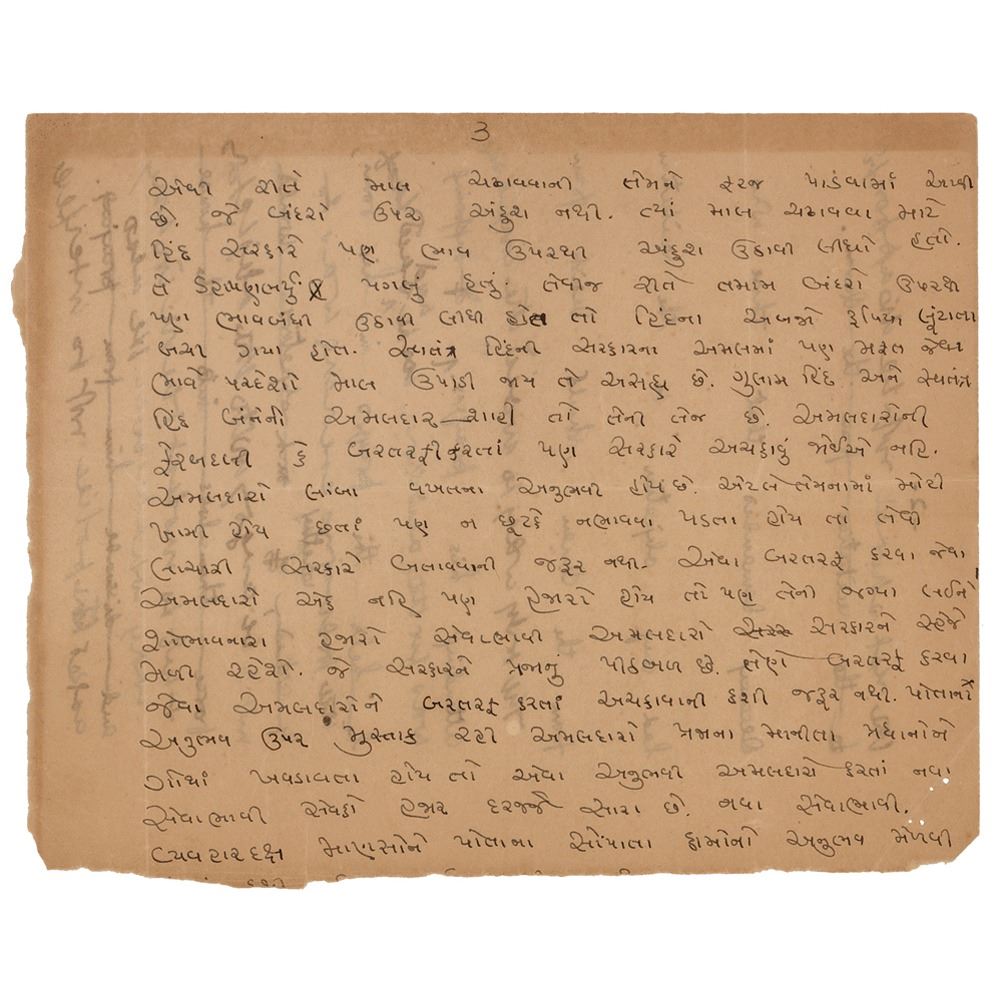 3
એવી રીતે માલ ચઢાવવાની તેમને ફરજ પાડવામાં આવી
છે. જે બંદરો ઉપર અંકુશ નથી. ત્યાં માલ ચઢાવવા માટે
હિંદ સરકારે પણ ભાવ ઉપરથી અંકુશ ઉઠાવી લીધો હતો.
તે ડહાપણભર્યું પગલું હતું. તેવીજ રીતે તમામ બંદરો ઉપરથી
પણ ભાવબંધી ઉઠાવી લીધી હોત તો હિંદના અબજો રૂપિયા લૂંટાતા
બચી ગયા હોત. સ્વતંત્ર હિંદની સરકારના અમલમાં પણ મફત જેવા
ભાવે પરદેશો માલ ઉપાડી જાય તે અસહ્ય છે. ગુલામ હિંદ અને સ્વતંત્ર
હિંદ બંનેની અમલદાર શાહી તો તેની તેજ છે. અમલદારોની
ફેરબદલી કે બરતરફી કરતાં પણ સરકારે અચકાવું જોઈએ નહિ.
અમલદારો લાંબા વખતના અનુભવી હોય છે. એટલે તેમનામાં મોટી
ખામી હોય છતાં પણ ન છૂટકે નભાવવા પડતા હોય તો તેવી
લાચારી સરકારે બતાવવાની જરૂર નથી. એવા બરતરફ કરવા જેવા
અમલદારો એક નહિ પણ હજારો હોય તો પણ તેની જગ્યા લઈને
શોભાવનારા હજારો સેવાભાવી અમલદારો સરકારને સ્હેજે
મળી રહેશે. જે સરકારને પ્રજાનું પીઠબળ છે. તેણે બરતરફ કરવા
જેવા અમલદારોને બરતરફ કરતાં અચકાવાની કશી જરૂર નથી. પોતાનો
અનુભવ ઉપર મુસ્તાક રહી અમલદારો પ્રજાના માનીતા પ્રધાનોને
ગોથાં ખવડાવતા હોય તો એવા અનુભવી અમલદારો કરતાં નવા
સેવાભાવી સેવકો હજાર દરજ્જે સારા છે. નવા સેવાભાવી,
વ્યવહારદક્ષ માણસોને પોતાના સોંપાતા કામોનો અનુભવ મેળવી